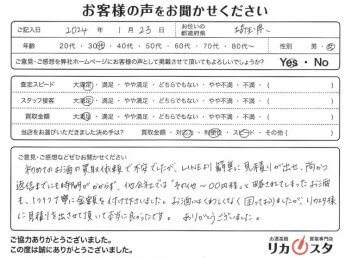 お客様の声をお聞かせください
ご記入日 2024年 1月 23日 お住いの都道府県 埼玉県
年齢 20代・30代・40代・50代・60代・70代・80代〜 性別 男・女
ご意見・ご感想を弊社ホームページにお客様の声として掲載させて頂いてもよろしいでしょうか? Yes・No
査定スピード 大満足・満足・やや満足・どちらでもない・やや不満・不満( )
スタッフ接客 大満足・満足・やや満足・どちらでもない・やや不満・不満( )
買取金額 大満足・満足・やや満足・どちらでもない・やや不満・不満( )
当店をお選びいただきました決め手は? 買取金額・対応力・利便性・スピード・その他( )
ご意見・ご感想などぜひお聞かせください
初めてのお酒の買取依頼で不安でしたが、LINEより簡単に見積りが出せ、尚かつ
返信までにも時間がかからず、他会社では"その他〜00円程"と略されてしまったお酒
も、1つ1つ丁寧に金額を付けて下さいました。お酒にはくわしくなく困っておりましたが、リカスタ様
に見積りを出させて頂いて本当に良かったです。ありがとうございました。
ご協力ありがとうございました。
この度は誠にありがとうございました。
お酒高価買取専門店
リカスタ